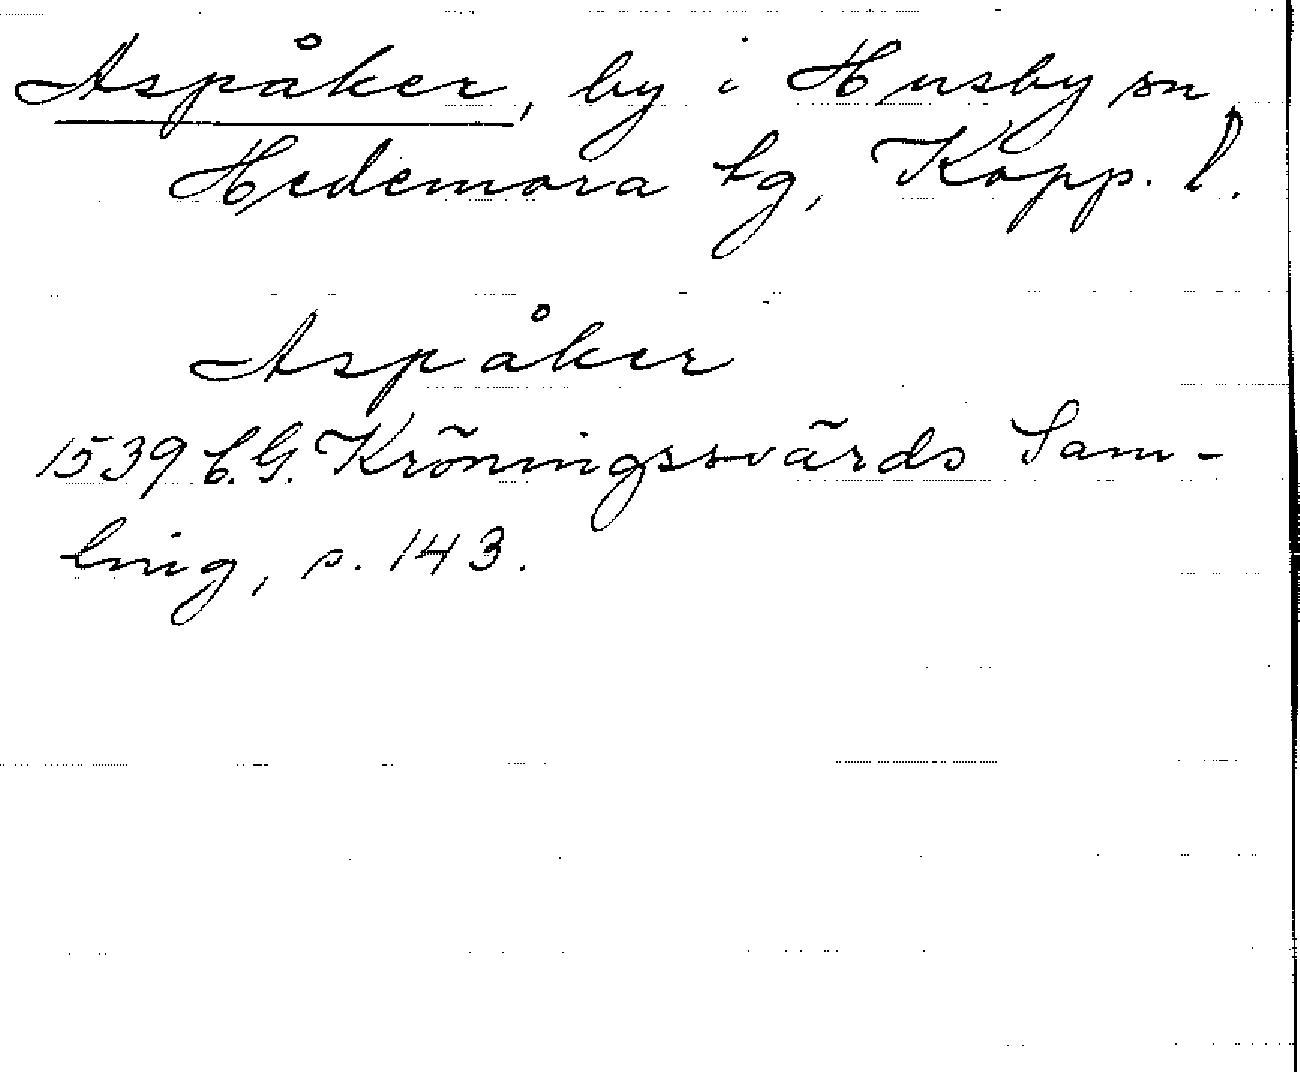 Aspåker, by i Husby sn
Hedemora tg, Kopp. l.
Aspåker
1539 C.G. Kröningssvärds Sam-
ling, s. 143.